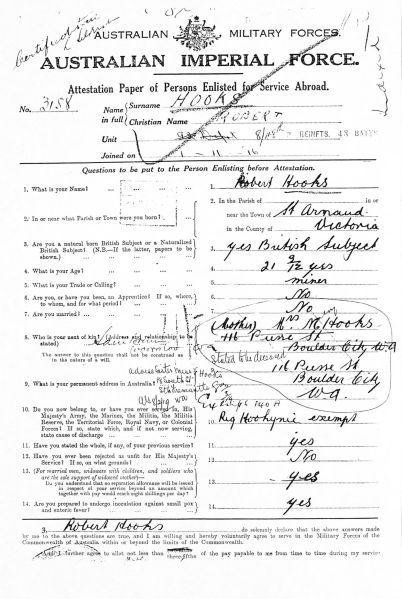 AUSTRALIAN MILITARY FORCES.
AUSTRALIAN IMPERIAL FORCE.
Attestation Paper of Persons Enlisted for Service Abroad.
No. 3158
Name in full
Surname HOOKS
Christian Name ROBERT
Unit REINFTS, 48 BATTN
Joined on 1-11-16
Questions to be put to the Person Enlisting before Attestation.
1. What is your Name? 1. Robert Hooks
2. In or near what Parish or Town were you born? 2. In the Parish of in or
near the Town of St Arnaud
in the County of Victoria
3. Are you a natural born British Subject or a Naturalized
British Subject? (N.B.—If the latter, papers to be
shown.) 3. yes British Subject
4. What is your Age? 4. 21 9/12 yrs
5. What is your Trade or Calling? 5. miner
6. Are you, or have you been, an Apprentice? If so, where,
to whom, and for what period? 6. No
7. Are you married? 7. No
8. Who is your next of kin? (Address and relationship to be
stated) 8. (Mother) Mrs M Hooks
116 Piesse St
Boulder City WA
Stated to be deceased
The answer to this question shall not be construed as
in the nature of a will.
9. What is your permanent address in Australia? 9. 116 Piesse St
Boulder City
WA
10. Do you now belong to, or have you ever served in, His
Majesty's Army, the Marines, the Militia, the Militia
Reserve, the Territorial Force, Royal Navy, or Colonial
Forces? If so, state which, and if not now serving,
state cause of discharge 10. exempt
11. Have you stated the whole, if any, of your previous service? 11. yes
12. Have you ever been rejected as unfit for His Majesty's
Service? If so, on what grounds? 12. No
13. (For married men, widowers with children, and soldiers who
are the sole support of widowed mother—
Do you understand that no separation allowance will be issued in
respect of your service beyond an amount which
together with pay would reach eight shillings per day? 13. yes
14. Are you prepared to undergo inoculation against small pox
and enteric fever? 14. yes
I, Robert Hooks do solemnly declare that the above answers made
by me to the above questions are true, and I am willing and hereby voluntarily agree to serve in the Military Forces of the
Commonwealth of Australia within or beyond the limits of the Commonwealth.
And I further agree to allot not less than of the pay payable to me from time to time during my service